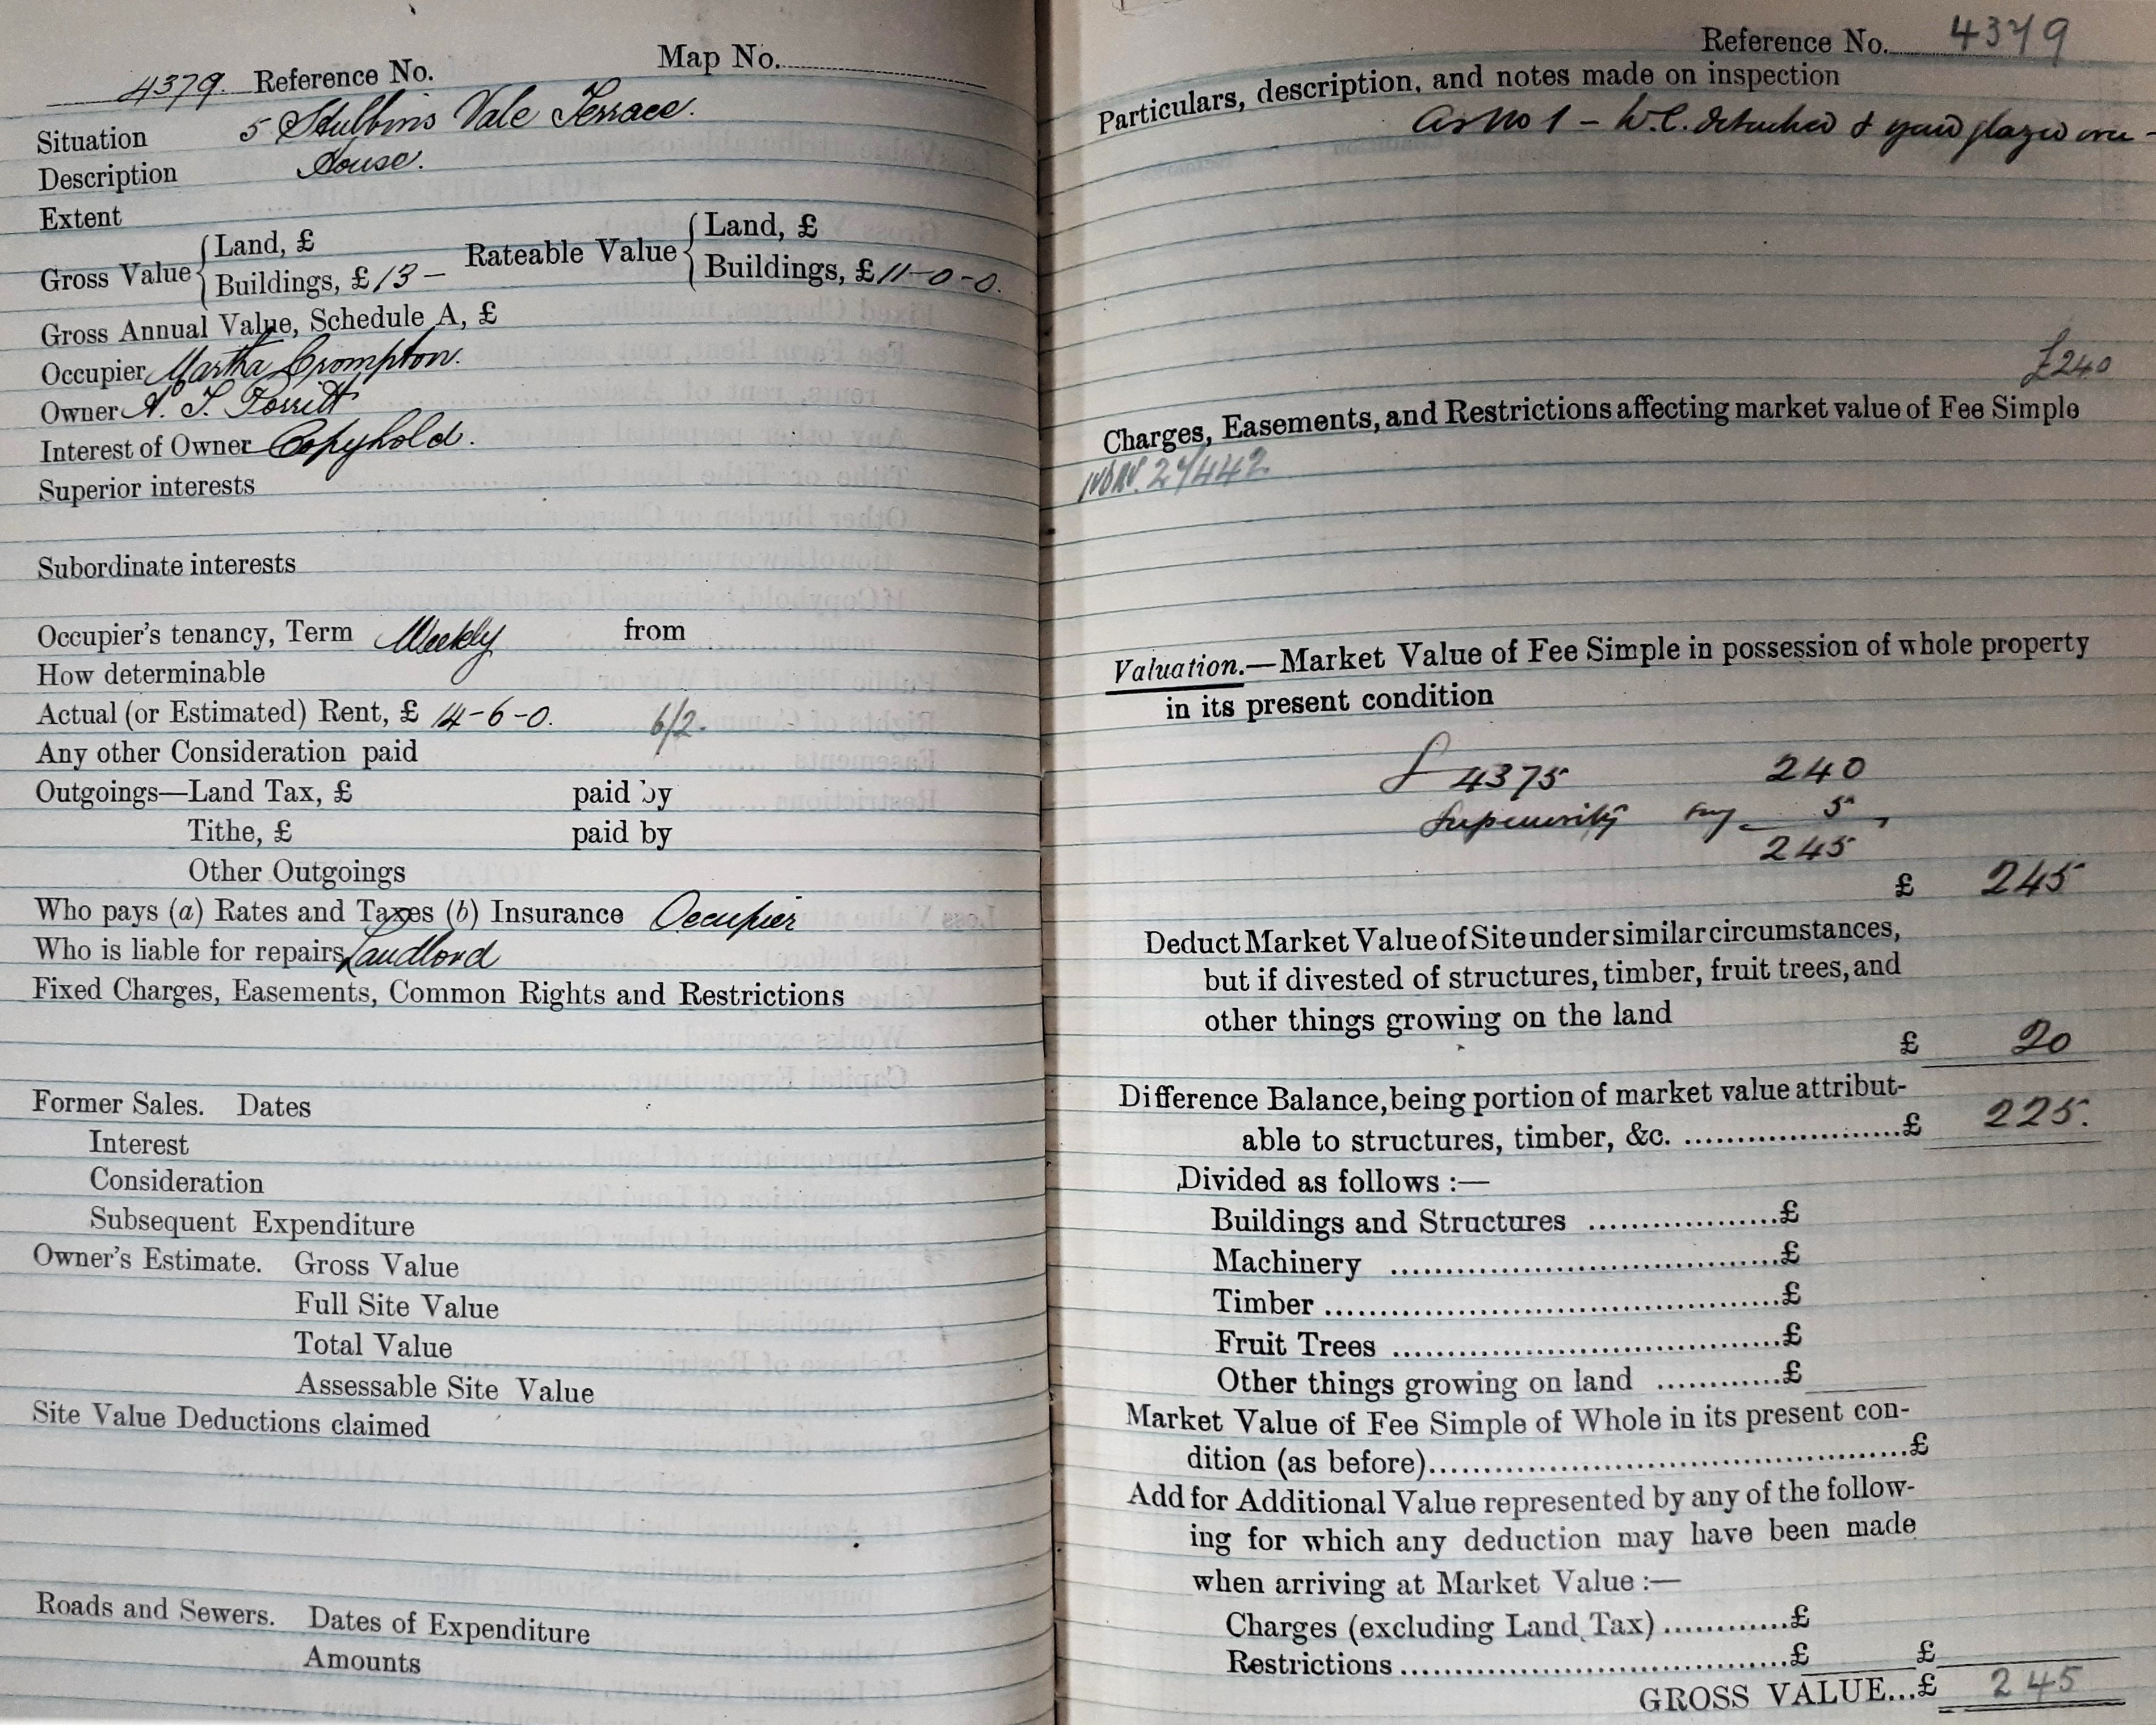 4379. Reference No. Map No.
Situation 5 Stubbins Vale Terrace.
Description House.
Extent
Gross Value { Land, £
Buildings, £ 13 – Rateable Value { Land, £
Buildings, £ 11-0-0.
Gross Annual Value, Schedule A, £
Occupier Martha Crompton.
Owner A. T. Porritt
Interest of Owner Copyhold.
Superior interests
Subordinate interests
Occupier's tenancy, Term Weekly from
How determinable
Actual (or Estimated) Rent, £ 14-6-0. 6/2.
Any other Consideration paid
Outgoings—Land Tax, £ paid by
Tithe, £ paid by
Other Outgoings
Who pays (a) Rates and Taxes (b) Insurance Occupier
Who is liable for repairs Landlord
Fixed Charges, Easements, Common Rights and Restrictions
Former Sales. Dates
Interest
Consideration
Subsequent Expenditure
Owner's Estimate. Gross Value
Full Site Value
Total Value
Assessable Site Value
Site Value Deductions claimed
Roads and Sewers. Dates of Expenditure
Amounts
Reference No. 4379
Particulars, description, and notes made on inspection
As No 1 – W.C. detached & yard glazed over –
£240
Charges, Easements, and Restrictions affecting market value of Fee Simple
27442
Valuation.—Market Value of Fee Simple in possession of whole property
in its present condition
£ 4375 240
Superiority say 5
245
£ 245
Deduct Market Value of Site under similar circumstances,
but if divested of structures, timber, fruit trees, and
other things growing on the land
£ 20
Difference Balance, being portion of market value attribut-
able to structures, timber, &c. ......................£ 225.
Divided as follows :—
Buildings and Structures ...................£
Machinery ......................................£
Timber .............................................£
Fruit Trees ......................................£
Other things growing on land ............£
Market Value of Fee Simple of Whole in its present con-
dition (as before)................................................£
Add for Additional Value represented by any of the follow-
ing for which any deduction may have been made
when arriving at Market Value :—
Charges (excluding Land Tax) .............£
Restrictions .......................................£ £
GROSS VALUE...£ 245